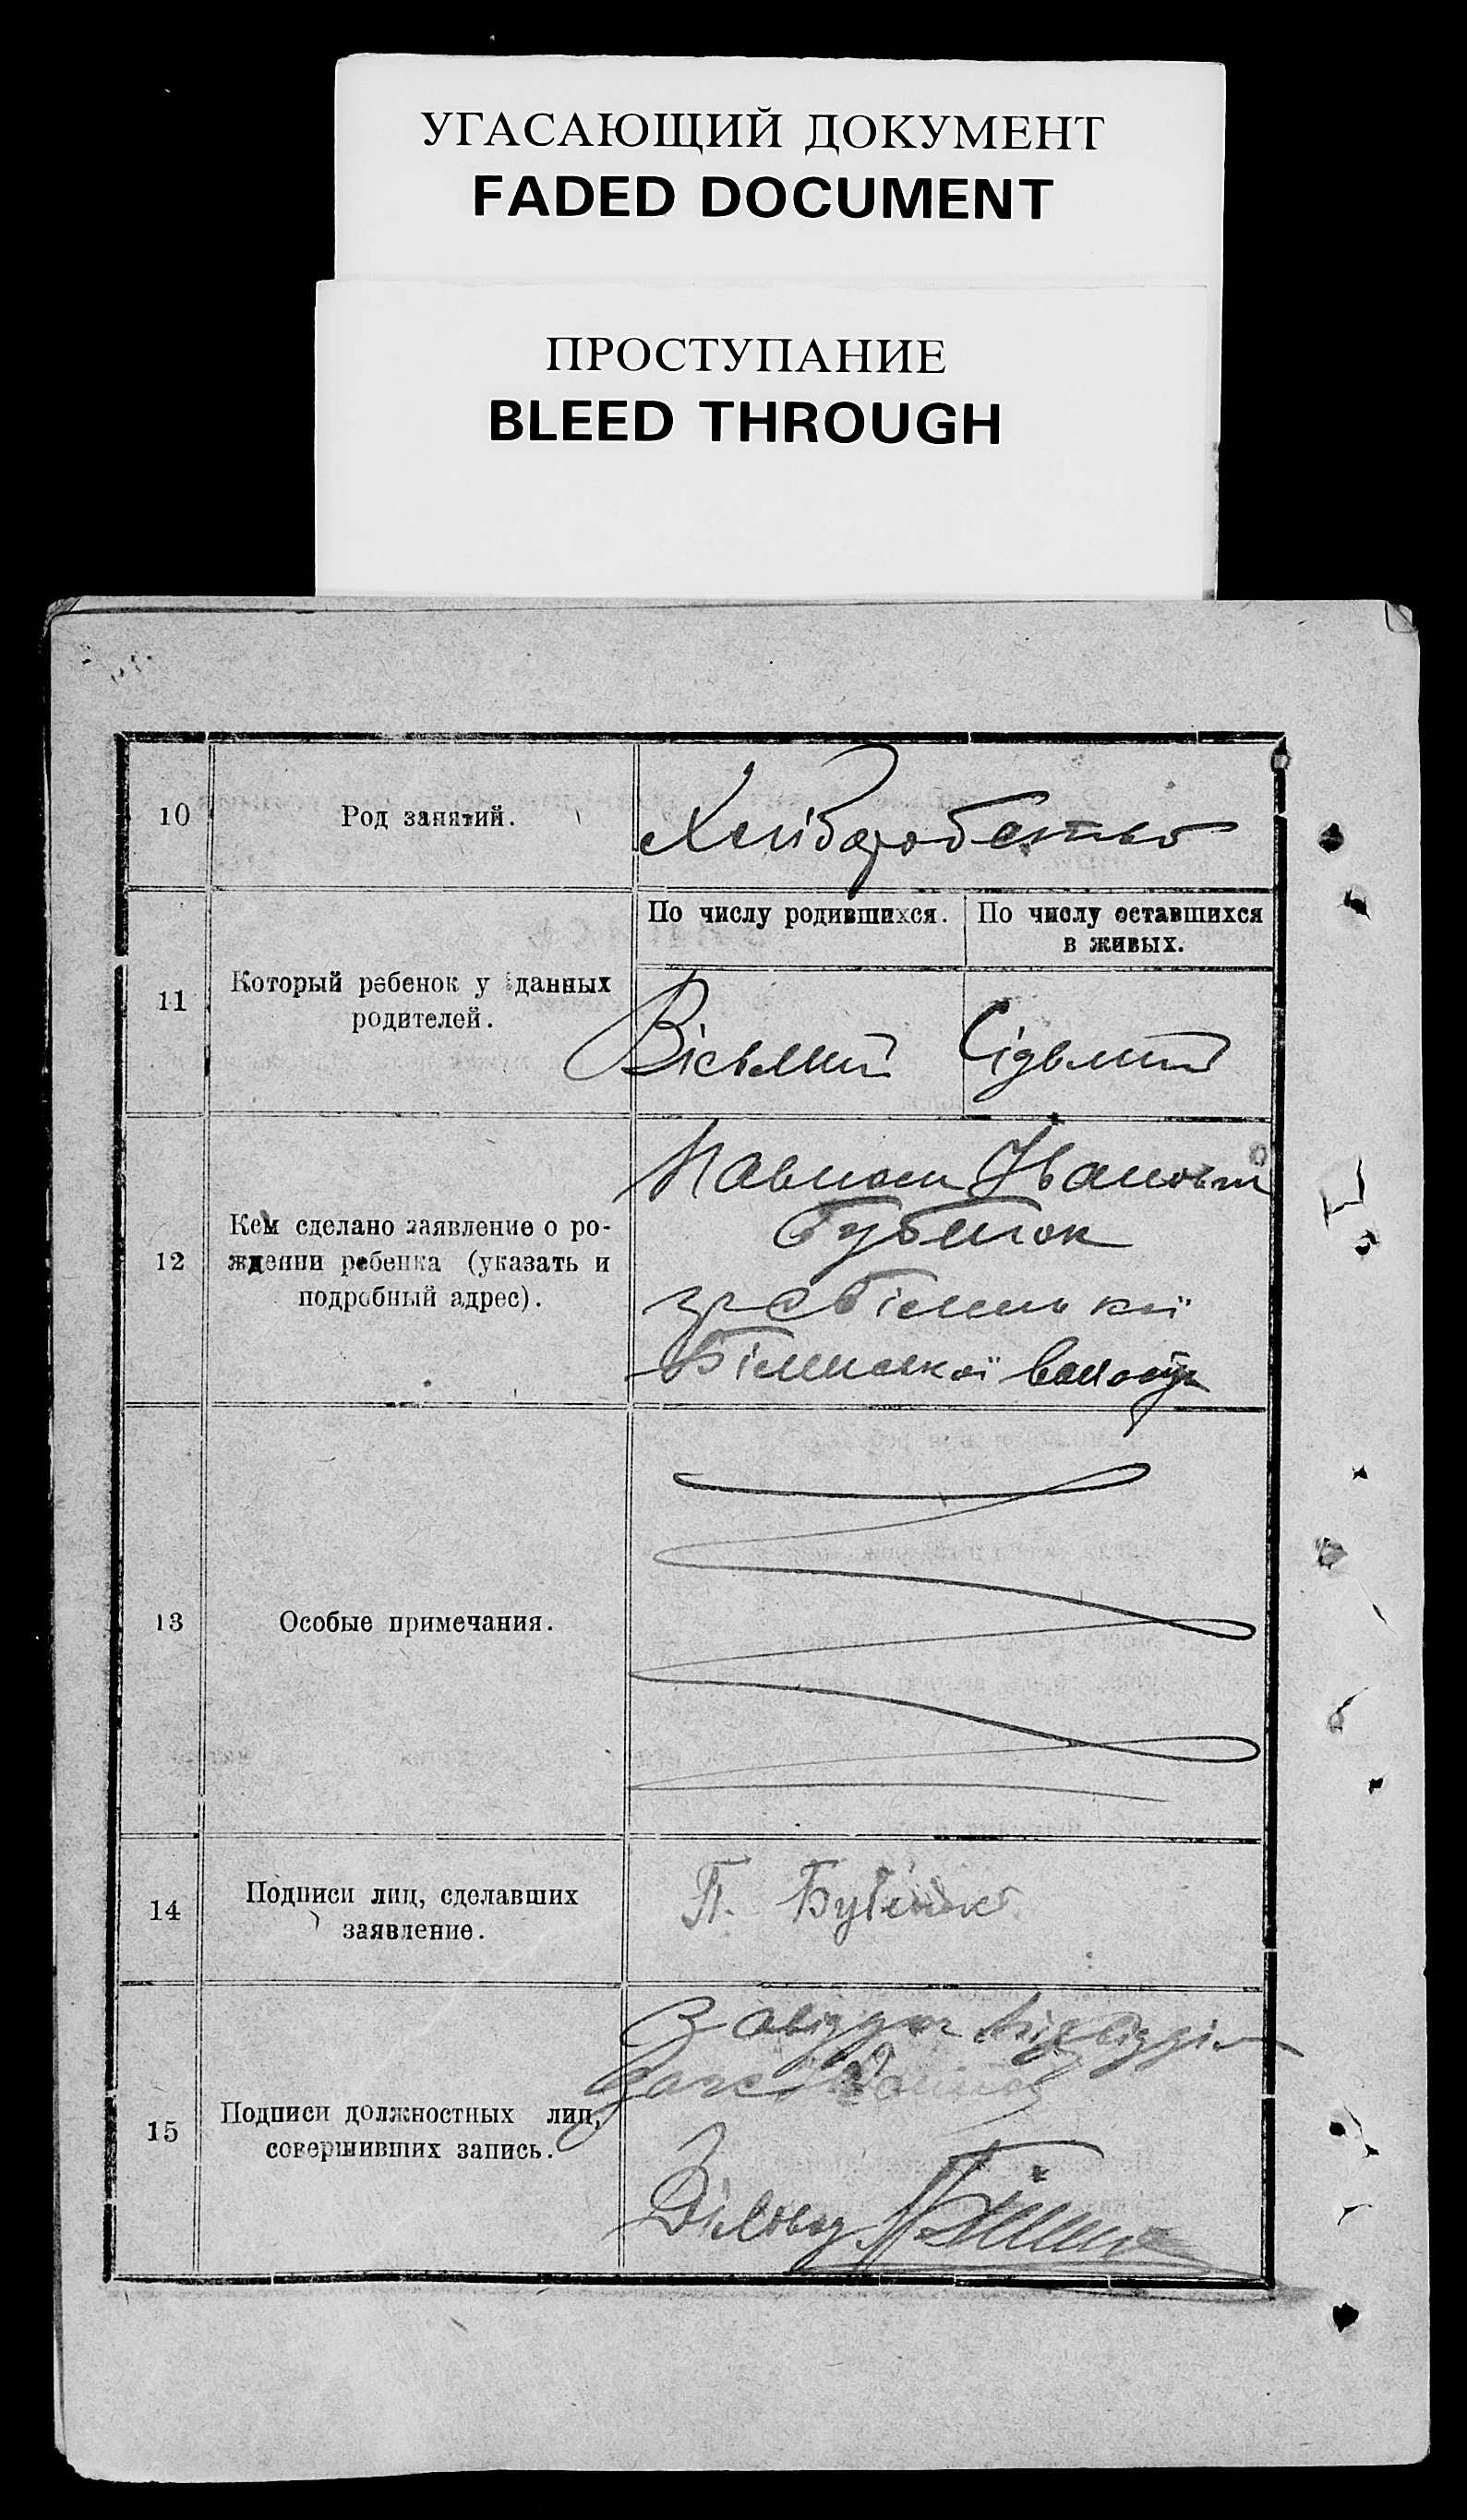 УГАСАЮЩИЙ ДОКУМЕНТ
FADED DOCUMENT
ПРОСТУПАНИЕ
BLEED THROUGH
10
Род занятий.
Хліборобство
По числу родившихся.
По числу оставшихся
в живых.
11
Который ребенок у данных
родителей.
Вісьмий
Сідьмий
12
Кем сделано заявление о ро-
ждении ребенка (указать и
подробный адрес).
Павлом Івановим
Бубенок
Білицької волости
13
Особые примечания.
14
Подписи лиц, сделавших
заявление.
П. Бубенок
15
Подписи должностных лиц,
совершивших запись.
Діловод